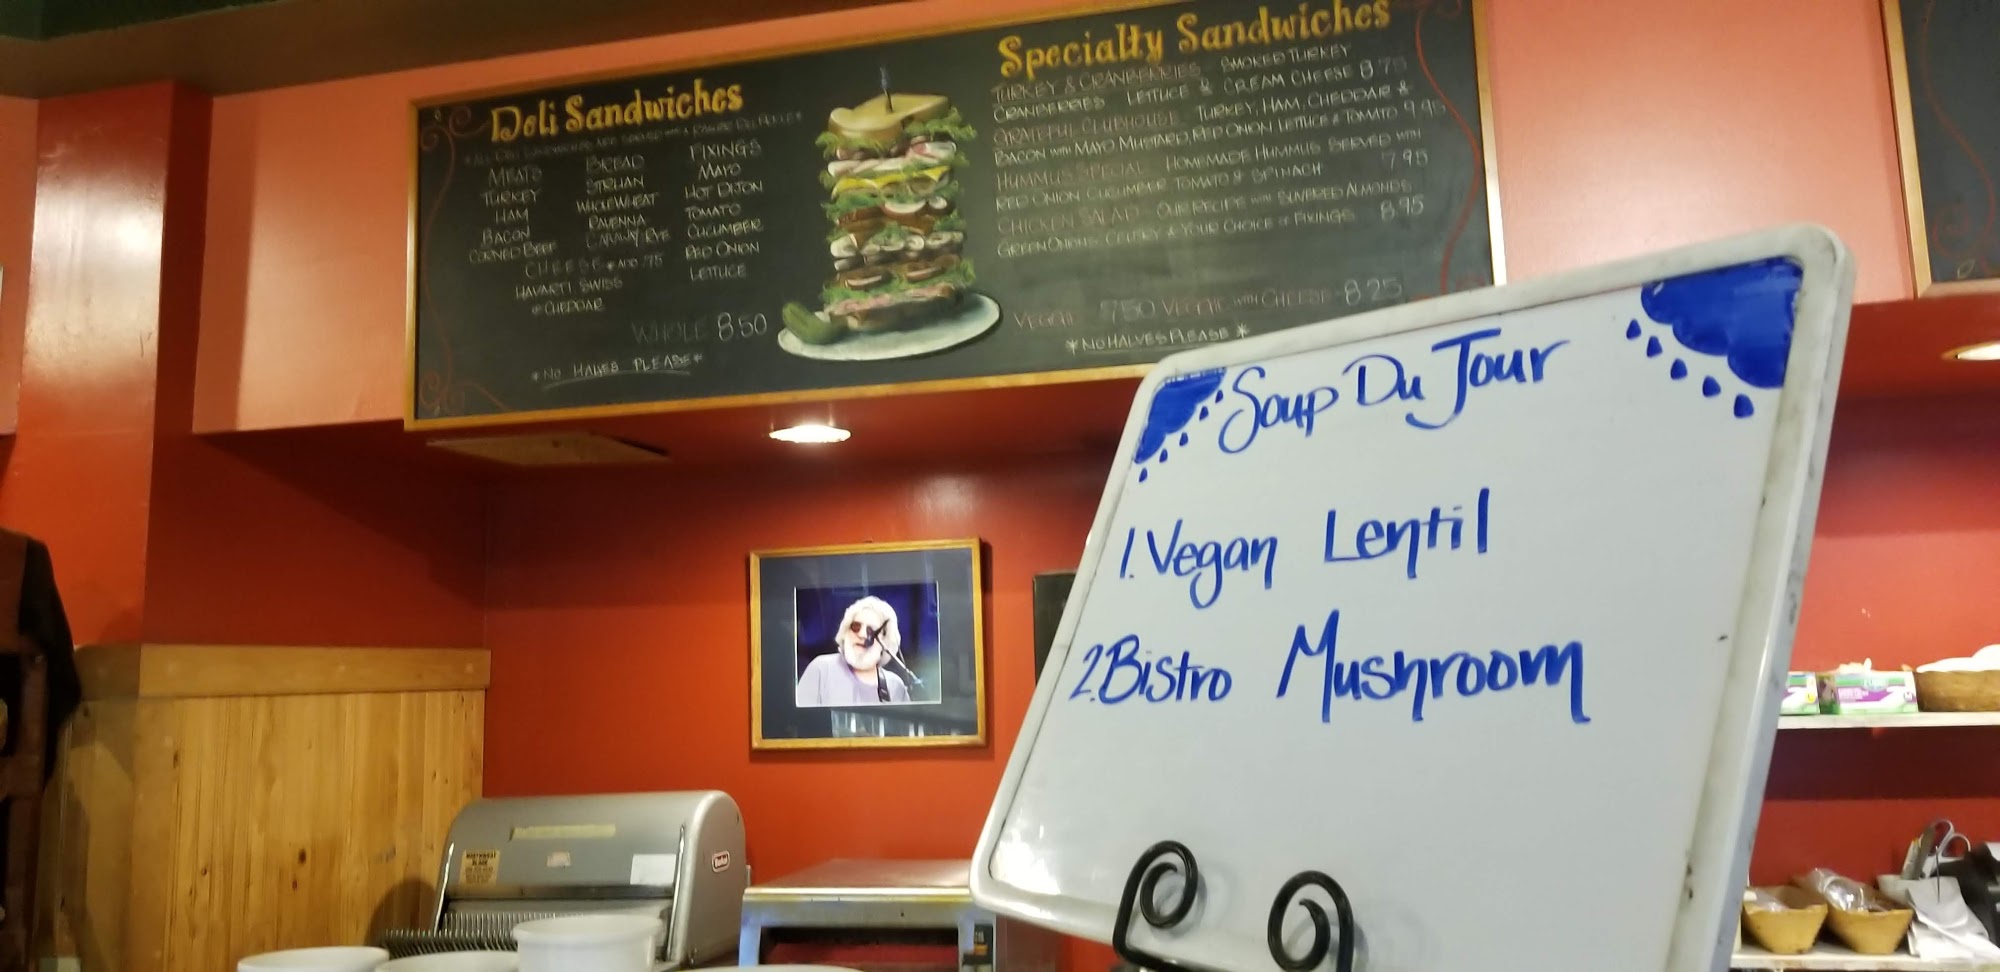 Deli Sandwiches
MEATS
TURKEY
HAM
BACON
CORNED BEEF
BREAD
STRUAN
WHOLE WHEAT
RAVENNA
FIXINGS
MAYO
HOT DIJON
TOMATO
CUCUMBER
RED ONION
LETTUCE
CHEESE ADD .75
HAVARTI SWISS
CHEDDAR
WHOLE 8.50
*NO HALVES PLEASE*
Specialty Sandwiches
TURKEY & CRANBERRIES SMOKED TURKEY
CRANBERRIES LETTUCE & CREAM CHEESE
GRATEFUL CLUBHOUSE TURKEY, HAM, CHEDDAR &
BACON WITH MAYO MUSTARD, RED ONION LETTUCE & TOMATO
HUMMUS SPECIAL HOMEMADE HUMMUS SERVED WITH
RED ONION CUCUMBER TOMATO & SPINACH 7.95
CHICKEN SALAD OUR RECIPE WITH ALMONDS
GREEN ONIONS CELERY & YOUR CHOICE OF FIXINGS 8.95
VEGGIE 7.50 VEGGIE WITH CHEESE 8.25
*NO HALVES PLEASE*
Soup Du Jour
1. Vegan Lentil
2. Bistro Mushroom